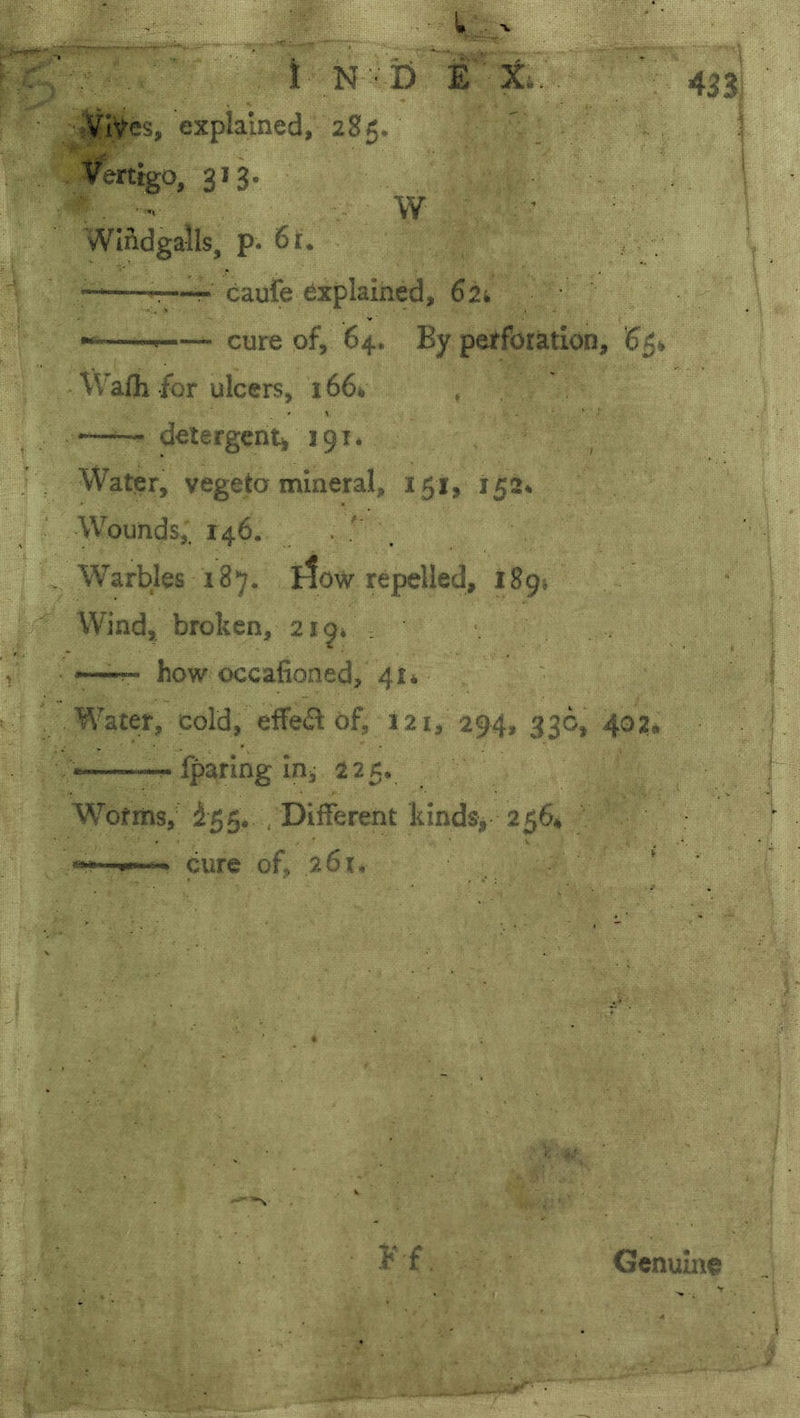 INDEX. 433
Vives, explained, 285.
Vertigo, 313.
W
Windgalls, p. 61.
——— cauſe explained, 62.
——— cure of, 64. By perforation, 65.
Waſh for ulcers, 166.
—— detergent, 191.
Water, vegeto mineral, 151, 152.
Wounds, 146.
Warbles 187. How repelled, 189.
Wind, broken, 219.
—— how occaſioned, 41.
Water, cold, effect of, 121, 294, 330, 402.
——— ſparing in, 225.
Worms, 255. Different kinds, 256.
——— cure of, 261.
F f Genuine